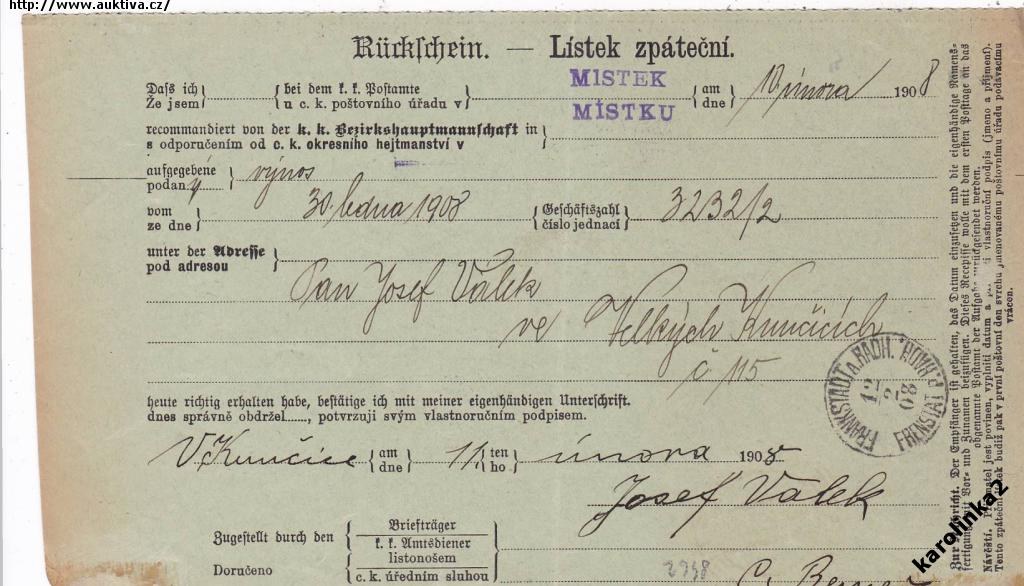 http://www.auktiva.cz/
Rückschein. — Lístek zpáteční.
Daß ich } { bei dem k. k. Postamte } MISTEK { am } 10 února 1908
Že jsem } { u c. k. poštovního úřadu v } MÍSTKU { dne }
recommandiert von der k. k. Bezirkshauptmannschaft in }
s odporučením od c. k. okresního hejtmanství v }
aufgegebene } výnos
podaný }
vom } 30. ledna 1908 { Geschäftszahl } 3232/2
ze dne } { číslo jednací }
unter der Adresse }
pod adresou }
Pan Josef Válek
ve Velkých Kunčicích
č 115
heute richtig erhalten habe, bestätige ich mit meiner eigenhändigen Unterschrift.
dnes správně obdržel......, potvrzuji svým vlastnoručním podpisem.
V. Kunčice { am } 11 { ten } února 1908
{ dne } { ho }
Josef Válek
Zugestellt durch den { Briefträger }
{ k. k. Amtsdiener }
Doručeno { listonošem }
{ c. k. úředním sluhou }
2948
FRANKSTADT A. RADH.
FRENŠTÁT P. RADH.
12/2 08
Zur Nachricht. Der Empfänger ist gehalten, das Datum einzusetzen und die eigenhändige Namens-
fertigung mit Vor- und Zunamen beizufügen. Dieses Recepisse wolle mit dem ersten Posttage an das
obgenannte Postamt der Aufgabe zurückgesendet werden.
Návěští. jest povinen, vyplniti datum a vlastnoruční podpis (jmeno a příjmení).
Tento zpáteční budiž pak v první poštovní den svrchu jmenovanému poštovnímu úřadu podávacímu
vrácen.
karolinka2